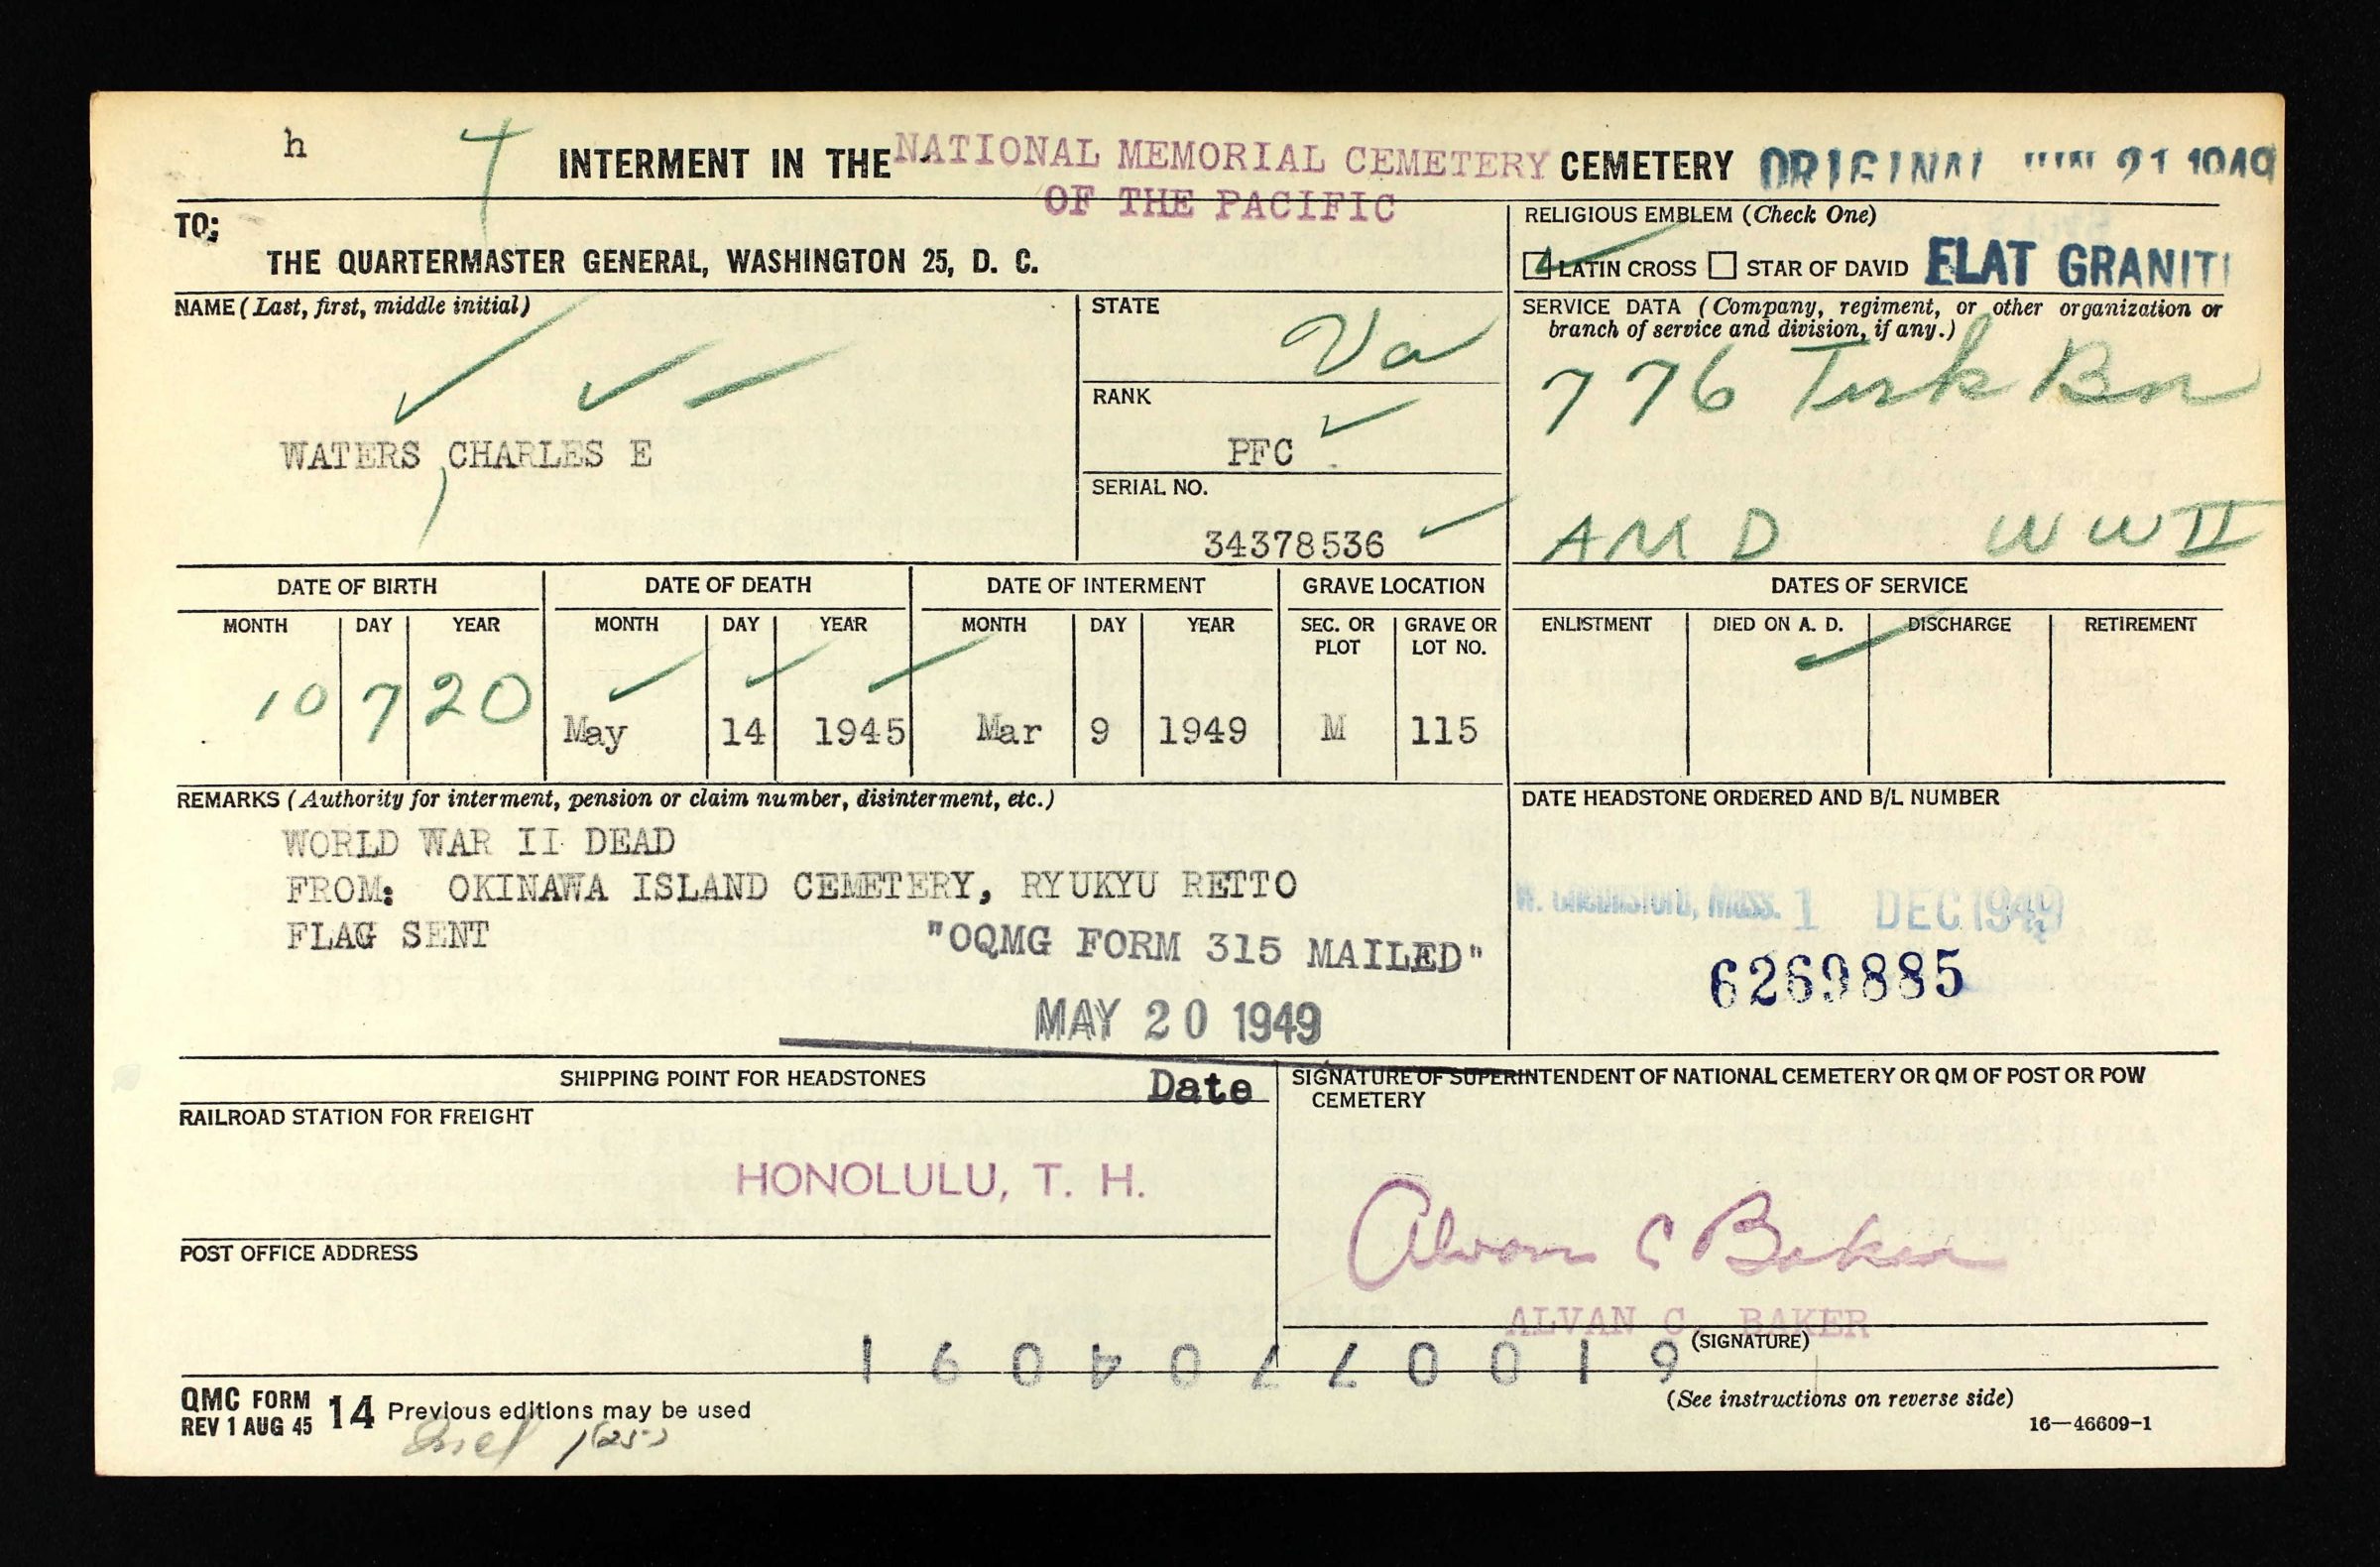 h
INTERMENT IN THE NATIONAL MEMORIAL CEMETERY CEMETERY ORIGINAL JUN 21 1949
OF THE PACIFIC
TO;
THE QUARTERMASTER GENERAL, WASHINGTON 25, D. C.
RELIGIOUS EMBLEM (Check One)
LATIN CROSS STAR OF DAVID FLAT GRANIT
NAME (Last, first, middle initial)
WATERS, CHARLES E
STATE
Va
RANK
PFC
SERIAL NO.
34378536
SERVICE DATA (Company, regiment, or other organization or
branch of service and division, if any.)
776 Tnk Bn
AMD WW II
DATE OF BIRTH DATE OF DEATH DATE OF INTERMENT GRAVE LOCATION DATES OF SERVICE
MONTH DAY YEAR MONTH DAY YEAR MONTH DAY YEAR SEC. OR PLOT GRAVE OR LOT NO. ENLISTMENT DIED ON A. D. DISCHARGE RETIREMENT
10 7 20 May 14 1945 Mar 9 1949 M 115
REMARKS (Authority for interment, pension or claim number, disinterment, etc.)
WORLD WAR II DEAD
FROM: OKINAWA ISLAND CEMETERY, RYUKYU RETTO
FLAG SENT "OQMG FORM 315 MAILED"
MAY 20 1949
Date
DATE HEADSTONE ORDERED AND B/L NUMBER
W. Chelmsford, Mass. 1 DEC 1949
6269885
SHIPPING POINT FOR HEADSTONES
RAILROAD STATION FOR FREIGHT
HONOLULU, T. H.
POST OFFICE ADDRESS
SIGNATURE OF SUPERINTENDENT OF NATIONAL CEMETERY OR QM OF POST OR POW
CEMETERY
Alvan C Baker
ALVAN C. BAKER
(SIGNATURE)
QMC FORM 14 Previous editions may be used
REV 1 AUG 45
(See instructions on reverse side)
16—46609-1